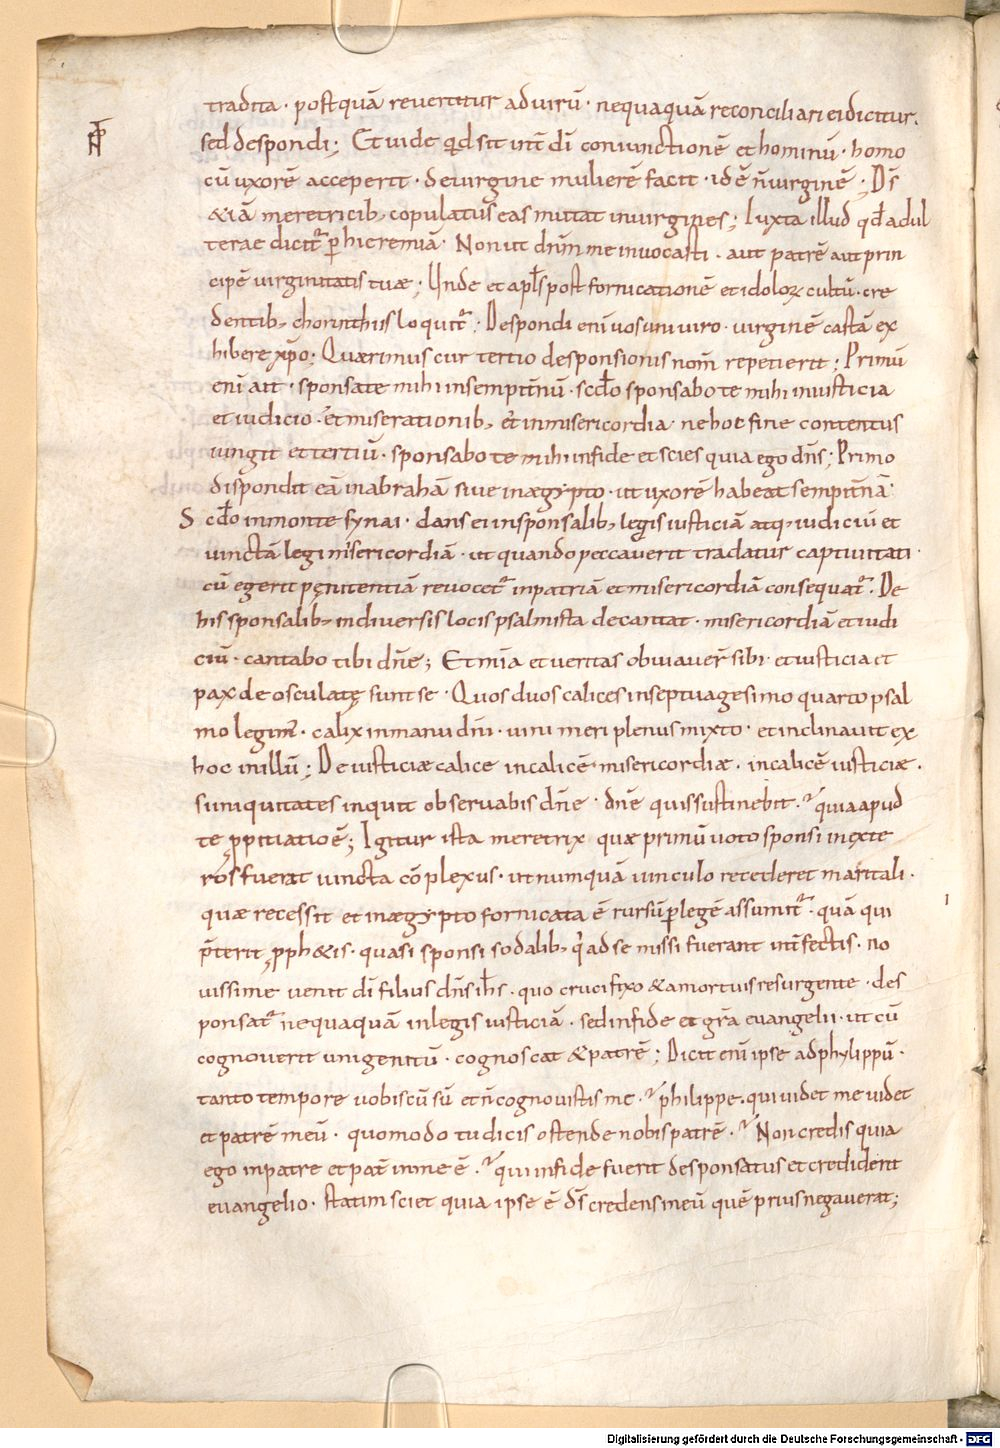 tradita · postquā revertitur ad uirū · nequaquā reconciliari ei dicitur.
sed despondi; Et uide qd sit int̄ dī coniunctionē et hominū · homo
cū uxorē acceperit · de uirgine mulierē facit · id ē n̄ uirginē ; D̄s
&iā meretricib; copulatus eas mutat in uirgines; Iuxta illud qđ adul
terae dicit̃ p hieremiā · Non ut dn̄m me inuocasti · aut patrē aut prin
cipē uirginitatis tuae; Unde et apl̄s post fornicationē et idoloꝝ cultū · cre
dentib; chorinthiis loquit̃; Despondi eni uos uni uiro · uirginē castā ex
hibere xp̄o; Quaerimus cur tertio desponsionis nom̄ repetierit; Primū
eni ait · sponsa te mihi in sempitnū · scdo sponsabo te mihi in iusticia
et iudicio · et miserationib; et in misericordia · ne hoc fine contentus
iungit et tertiū · sponsabo te mihi in fide et scies quia ego dn̄s; Primo
dispondit eā in abrahā siue in aegypto · ut uxorē habeat sempitn̄ā
Scdo in monte synai · dans ei in sponsalib; legis iusticiā atq; iudiciū et
iunctā legi misericordiā · ut quando peccauerit tradatur captiuitati ·
cū egerit pęnitentiā reuocet̃ in patriā et misericordiā consequat̃. De
his sponsalib; in diuersis locis psalmista decantat · misericordiā et iudi
ciū · cantabo tibi dn̄e; Et mīa et ueritas obuiauer̄ sibi · et iusticia et
pax deosculatę sunt se · Quos duos calices in septuagesimo quarto psal
mo legim̃ · calix in manu dn̄i · uini meri plenus mixto · et inclinauit ex
hoc in illū; De iusticiae calice in calicē misericordiae · in calicē iusticiae .
si iniquitates inquit obseruabis dn̄e · dn̄e quis sustinebit · quia apud
te ꝓpitiatio ē; Igitur ista meretrix quae primū uoto sponsi in exte
ros fuerat iuncta cōplexus · ut numquā uinculo recederet maritali ·
quae recessit et in aegypto fornicata ē rursū p legē assumit̃ · quā qui
p̄terit ꝓph&is · quasi sponsi sodalib; q̇ ad se missi fuerant int̄fectis · no
uissime uenit dī filius dn̄s ih̄s · quo crucifixo & a mortuis resurgente · des
ponsat̃ nequaquā in legis iusticiā · sed in fide et gr̄a euangelii · ut cū
cognouerit unigenitū · cognoscat & patrē; Dicit eni ipse ad phylippū ·
tanto tempore uobiscū sū et n̄ cognouistis me · philippe. qui uidet me uidet
et patrē meū · quomodo tu dicis ostende nobis patrē · Non credis quia
ego in patre et pat̄ in me ē · qui in fide fuerit desponsatus et crediderit
euangelio · statim sciet quia ipse ē d̄s credens in eū quē prius negauerat;